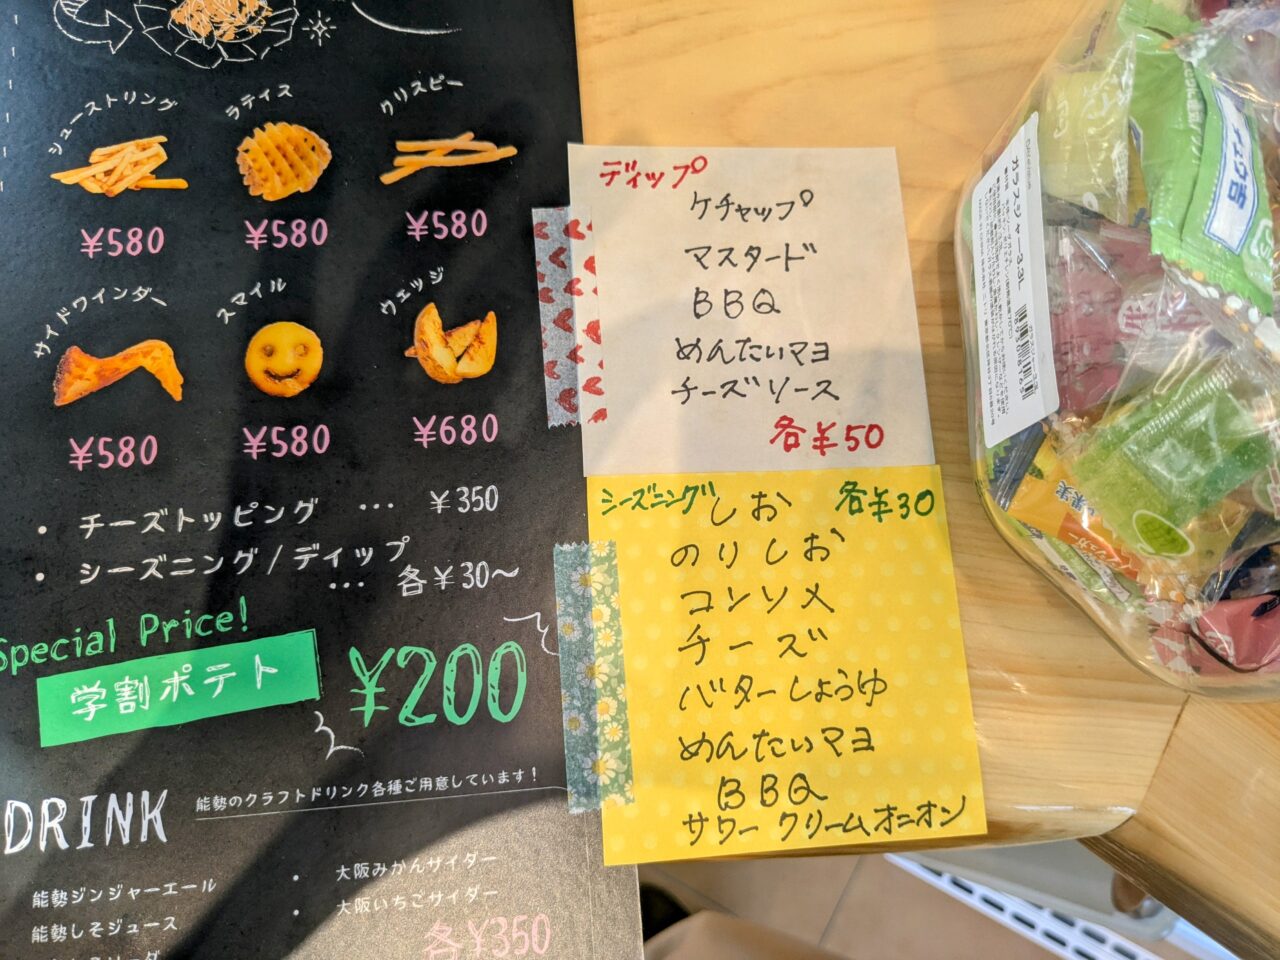 シューストリング
ラティス
クリスピー
¥580
¥580
¥580
サイドワインダー
スマイル
ウェッジ
¥580
¥580
¥680
• チーズトッピング … ¥350
• シーズニング/ディップ
… 各¥30〜
Special Price!
学割ポテト
¥200
DRINK
能勢のクラフトドリンク各種ご用意しています!
能勢ジンジャーエール
能勢しそジュース
• 大阪みかんサイダー
• 大阪いちごサイダー
各¥350
ディップ
ケチャップ
マスタード
BBQ
めんたいマヨ
チーズソース
各¥50
シーズニング
しお
各¥30
のりしお
コンソメ
チーズ
バターしょうゆ
めんたいマヨ
BBQ
サワークリームオニオン
ガラスジャー3.3L